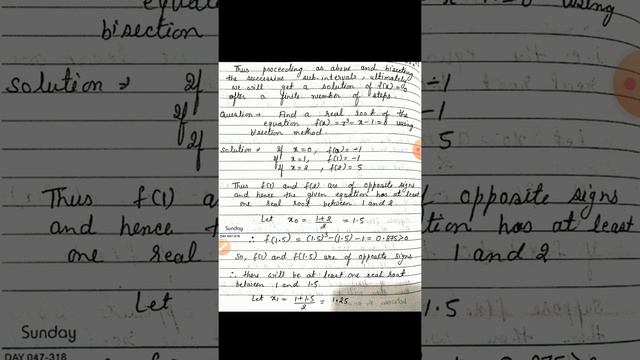 Thus proceeding as above and bisecting
the successive sub-intervals, ultimately
we will get a solution of f(x)=0
after a finite number of steps.
Question → Find a real root of the
equation f(x) = x³-x-1=0 using
bisection method.
Solution : If x=0, f(0) = -1
If x=1, f(1) = -1
If x=2, f(2) = 5
Thus f(1) and f(2) are of opposite signs
and hence the given equation has at least
one real root between 1 and 2
Let x₀ = 1+2/2 = 1.5
Sunday
DAY 047-318
∴ f(1.5) = (1.5)³-(1.5)-1 = 0.875>0
So, f(1) and f(1.5) are of opposite signs
∴ there will be at least one real root
between 1 and 1.5.
Let x₁ = 1+1.5/2 = 1.25